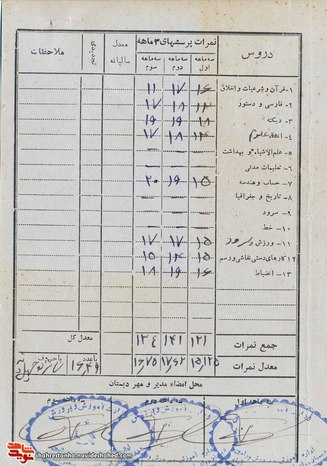 دروس نمرات پرسشهای ۳ ماهه معدل سالیانه تجدیدی ملاحظات
سه ماهه اول سه ماهه دوم سه ماهه سوم
۱- قرآن و شرعیات و اخلاق ۱۶ ۱۷ ۱۱
۲- فارسی و دستور ۱۷
۳- دیکته ۱۸ ۱۹ ۱۹
۴- انشاء ۱۸ ۱۷
۵- علم الاشیاء و بهداشت
۶- تعلیمات مدنی
۷- حساب و هندسه ۱۵ ۱۹ ۲۰
۸- تاریخ و جغرافیا
۹- سرود
۱۰- خط
۱۱- ورزش و سرود ۱۵ ۱۷ ۱۷
۱۲ کارهای دستی نقاشی و رسم ۱۵ ۱۵
۱۳- انضباط ۱۶ ۱۹ ۱۸
جمع نمرات ۱۲۱ ۱۴۱ ۱۳۴ معدل کل
معدل نمرات ۱۵/۱۲۵ ۱۷/۶۲ ۱۶/۷۵ باعدد ۱۶/۴۹ باحروف
محل امضاء مدیر و مهر دبستان
سه ماهه اول سه ماهه دوم سه ماهه سوم
shahrestanha.navideshahed.com